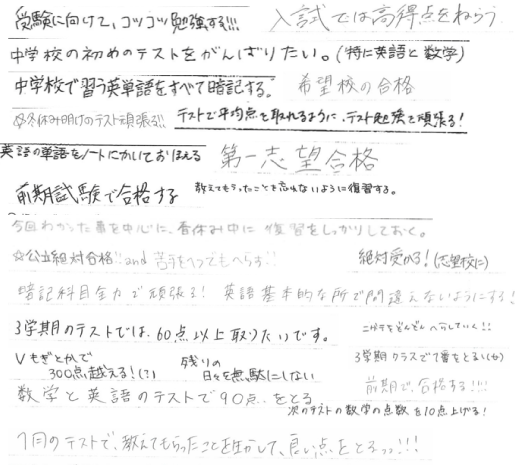 受験に向けて、コツコツ勉強する!!!
入試では高得点をねらう
中学校の初めのテストをがんばりたい。(特に英語と数学)
中学校で習う英単語をすべて暗記する。
希望校の合格
☆冬休み明けのテスト頑張る!!
テストで平均点を取れるように、テスト勉強を頑張る!
英語の単語をノートにかいておぼえる
第一志望合格
前期試験で合格する
教えてもらったことを忘れないように復習する。
今回わかった事を中心に、春休み中に復習をしっかりしておく。
☆公立絶対合格!! and 苦手を1つでもへらす!!
絶対受かる!(志望校に)
暗記科目全力で頑張る!
英語基本的な所で間違えないようにする!
3学期のテストでは、60点以上取りたいです。
ニガテをどんどんへらしていく!!
Vもぎとかで
300点越える!(?)
残りの
日々を無駄にしない
3学期クラスで1番をとる!
前期で、合格する!!!!
数学と英語のテストで90点をとる
次のテストの数学の点数を10点上げる!
1月のテストで、教えてもらったことを生かして、良い点をとるっっ!!!